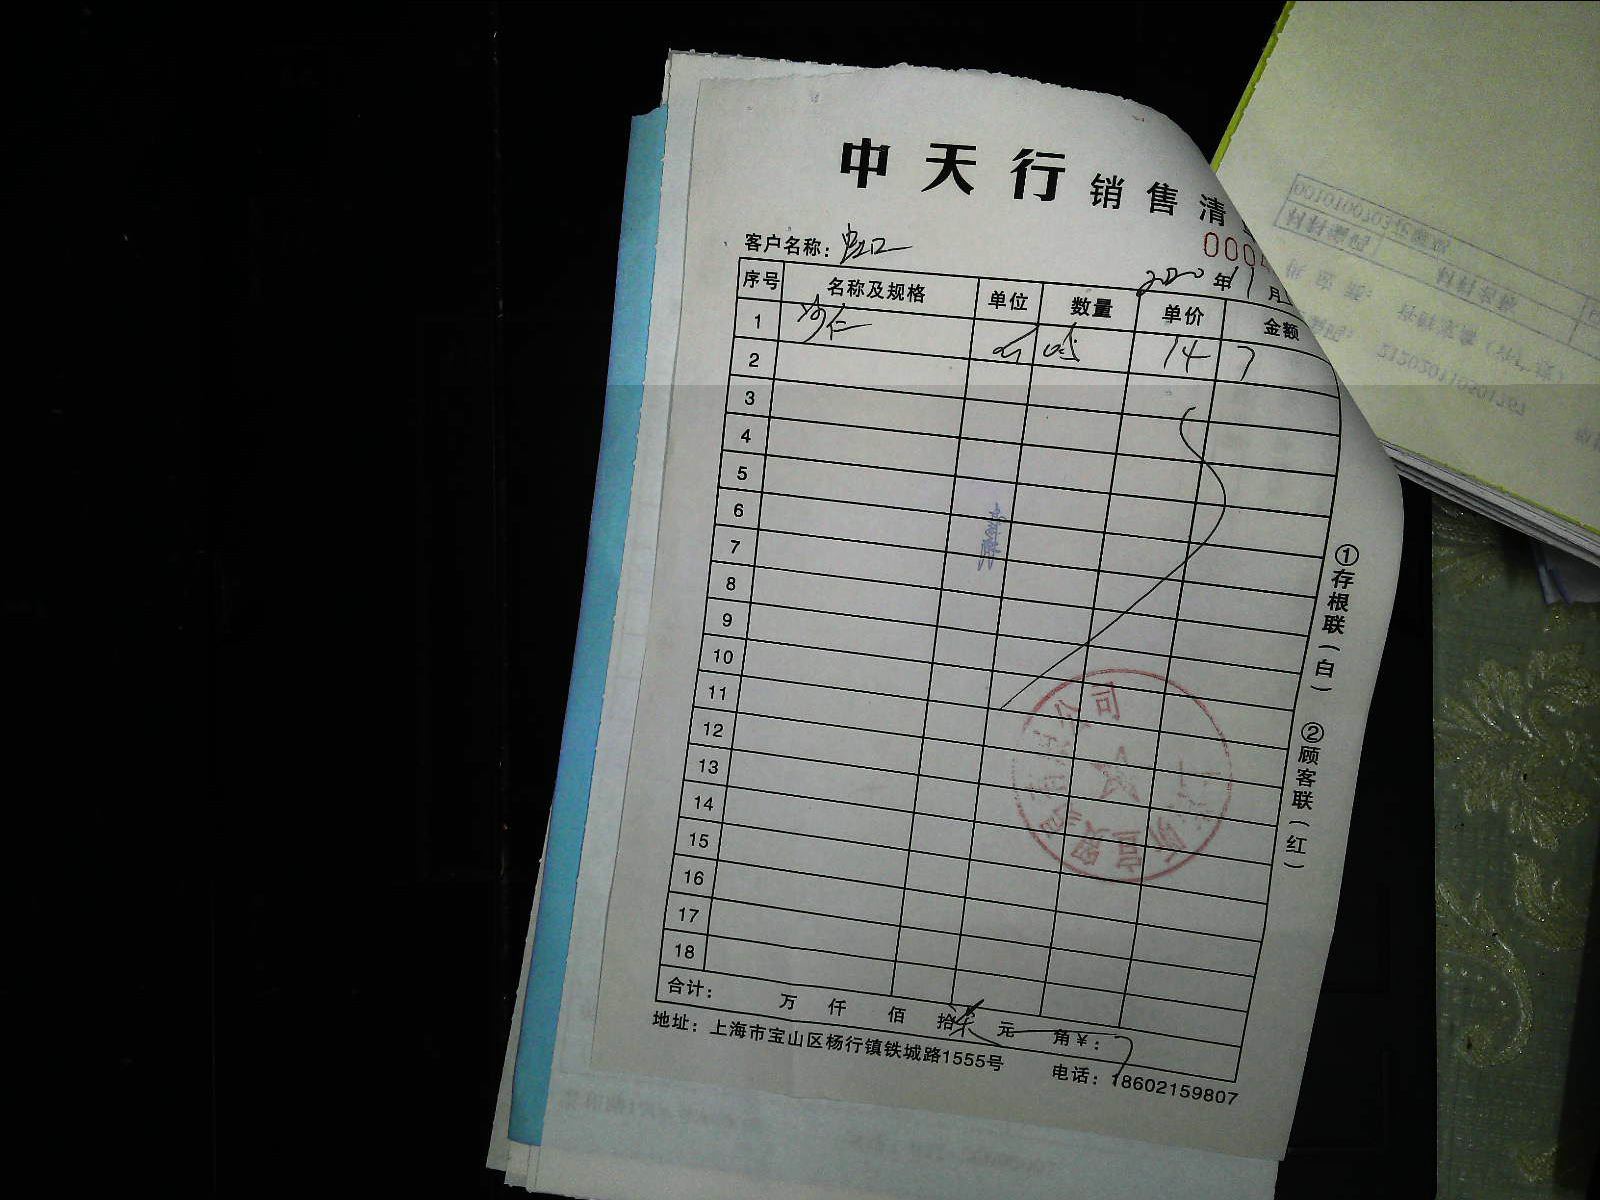 中天行 销售清
000
客户名称：虹口
2020 年 11 月
序号 名称及规格 单位 数量 单价 金额
1 沙仁 斤 0.5 14 7
2
3
4
5
6
7
8
9
10
11
12
13
14
15
16
17
18
合计： 万 仟 佰 拾 柒 元 角 ￥：7
地址：上海市宝山区杨行镇铁城路1555号 电话：18602159807
①存根联（白） ②顾客联（红）
公司